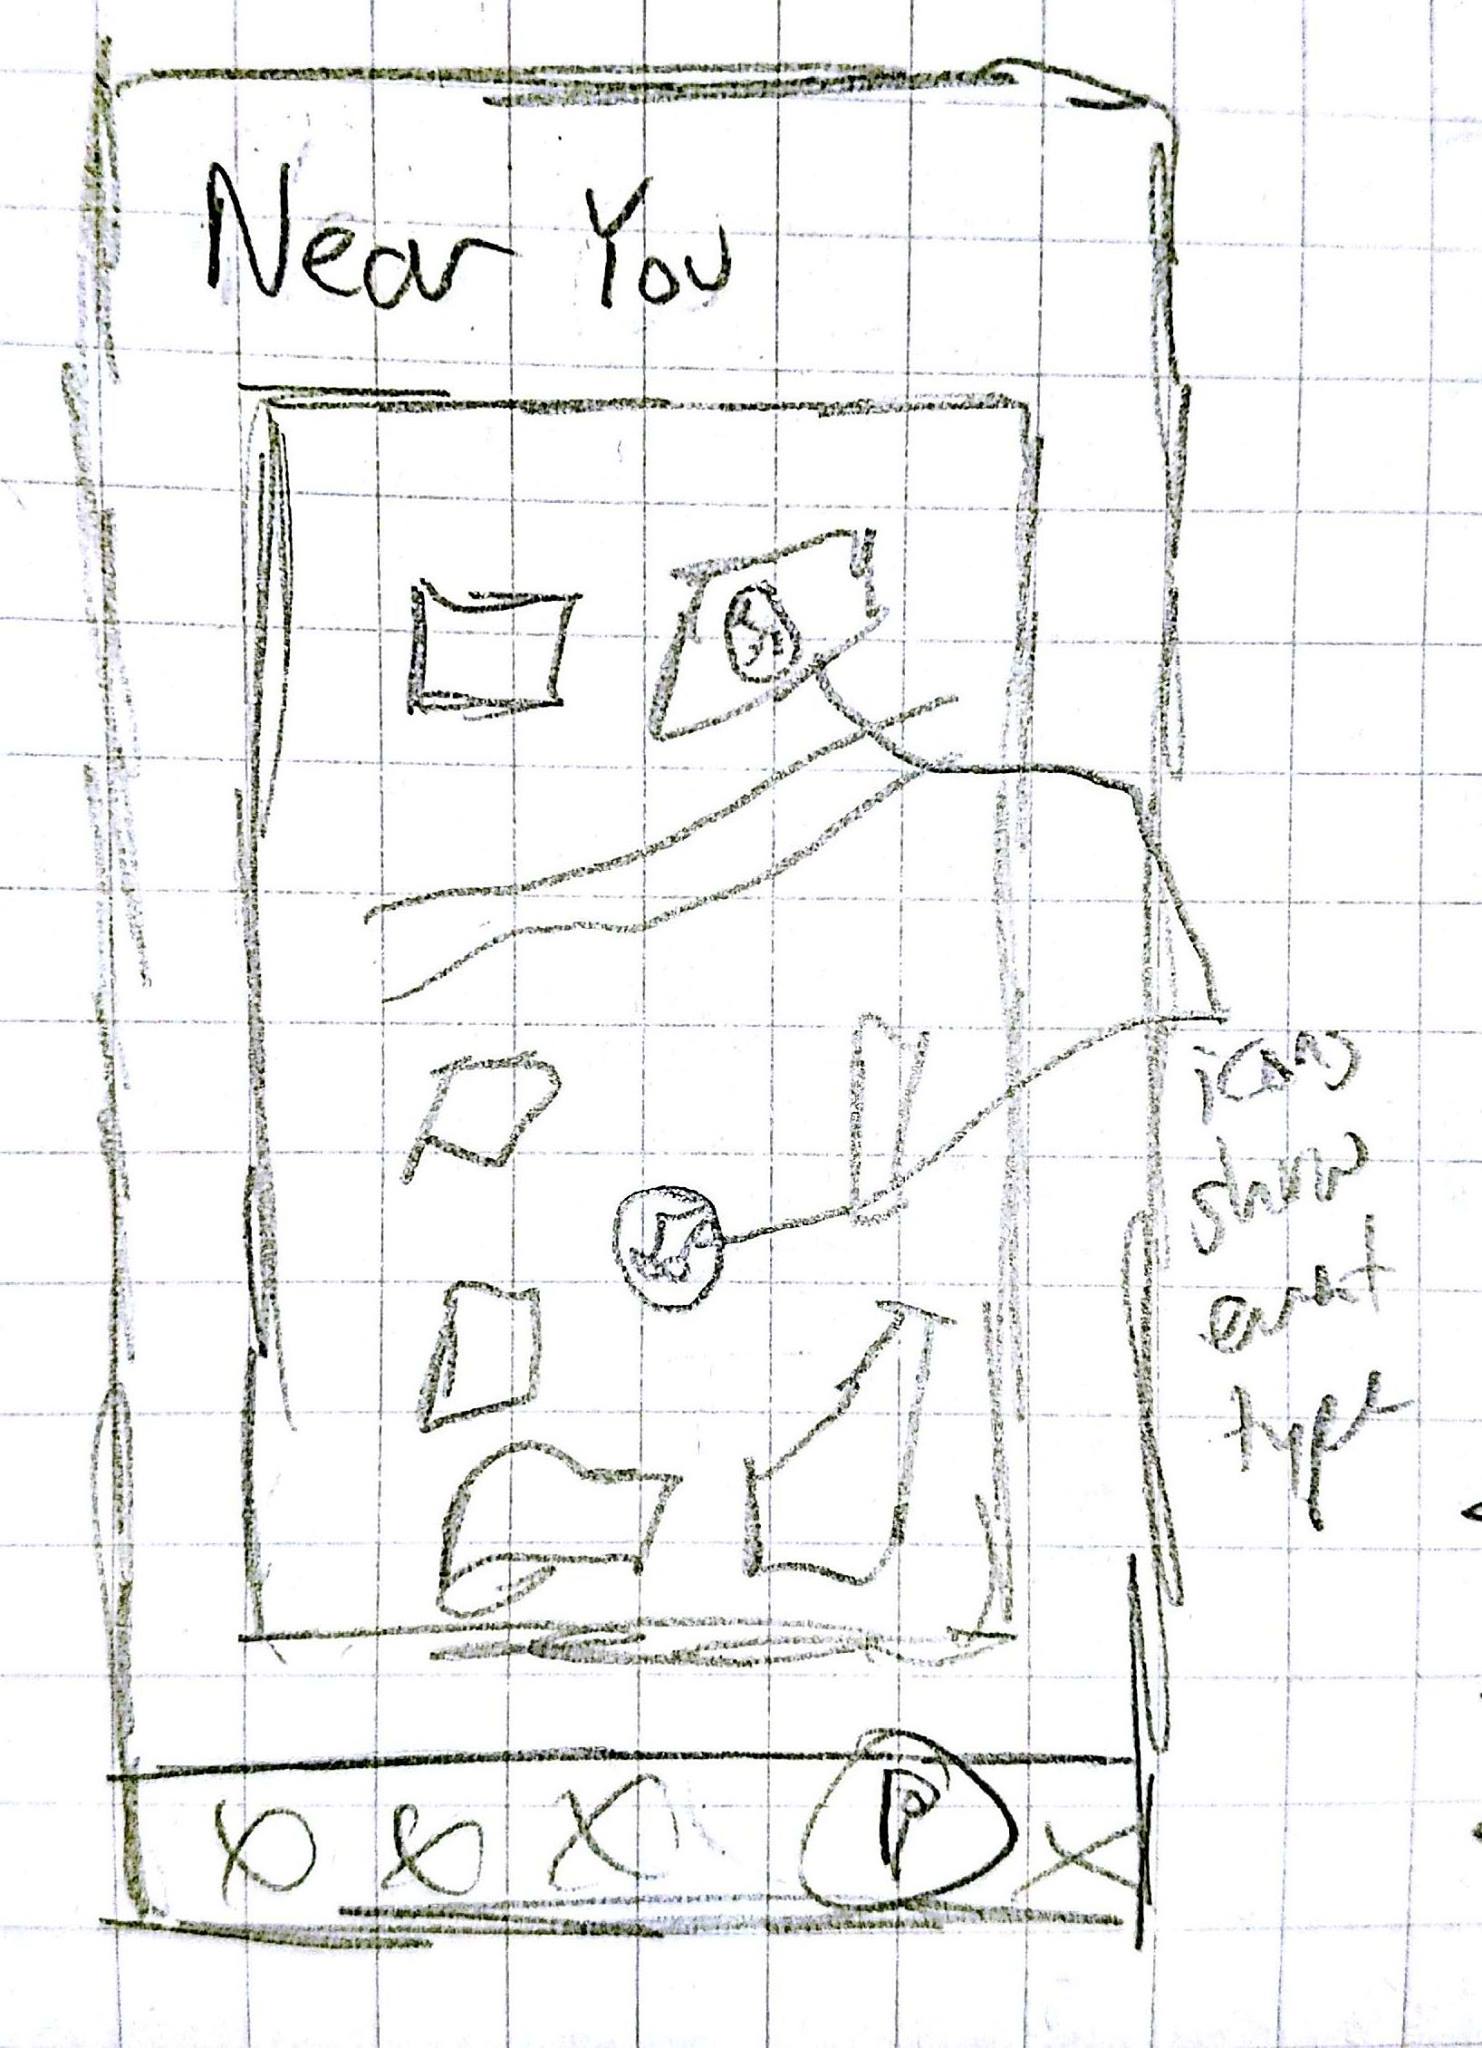 Near You
icons
show
event
type
P